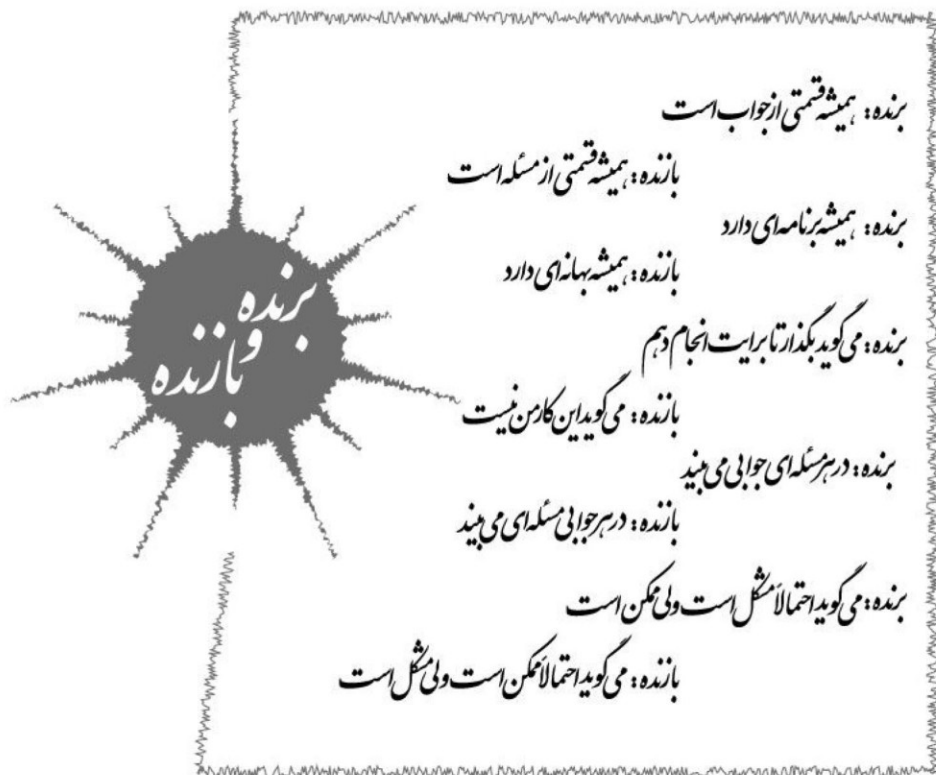 برنده
و
بازنده
برنده: همیشه قسمتی از جواب است
بازنده: همیشه قسمتی از مسئله است
برنده: همیشه برنامه‌ای دارد
بازنده: همیشه بهانه‌ای دارد
برنده: می‌گوید بگذار تا برایت انجام دهم
بازنده: می‌گوید این کار من نیست
برنده: در هر مسئله‌ای جوابی می‌بیند
بازنده: در هر جوابی مسئله‌ای می‌بیند
برنده: می‌گوید احتمالاً مشکل است ولی ممکن است
بازنده: می‌گوید احتمالاً ممکن است ولی مشکل است